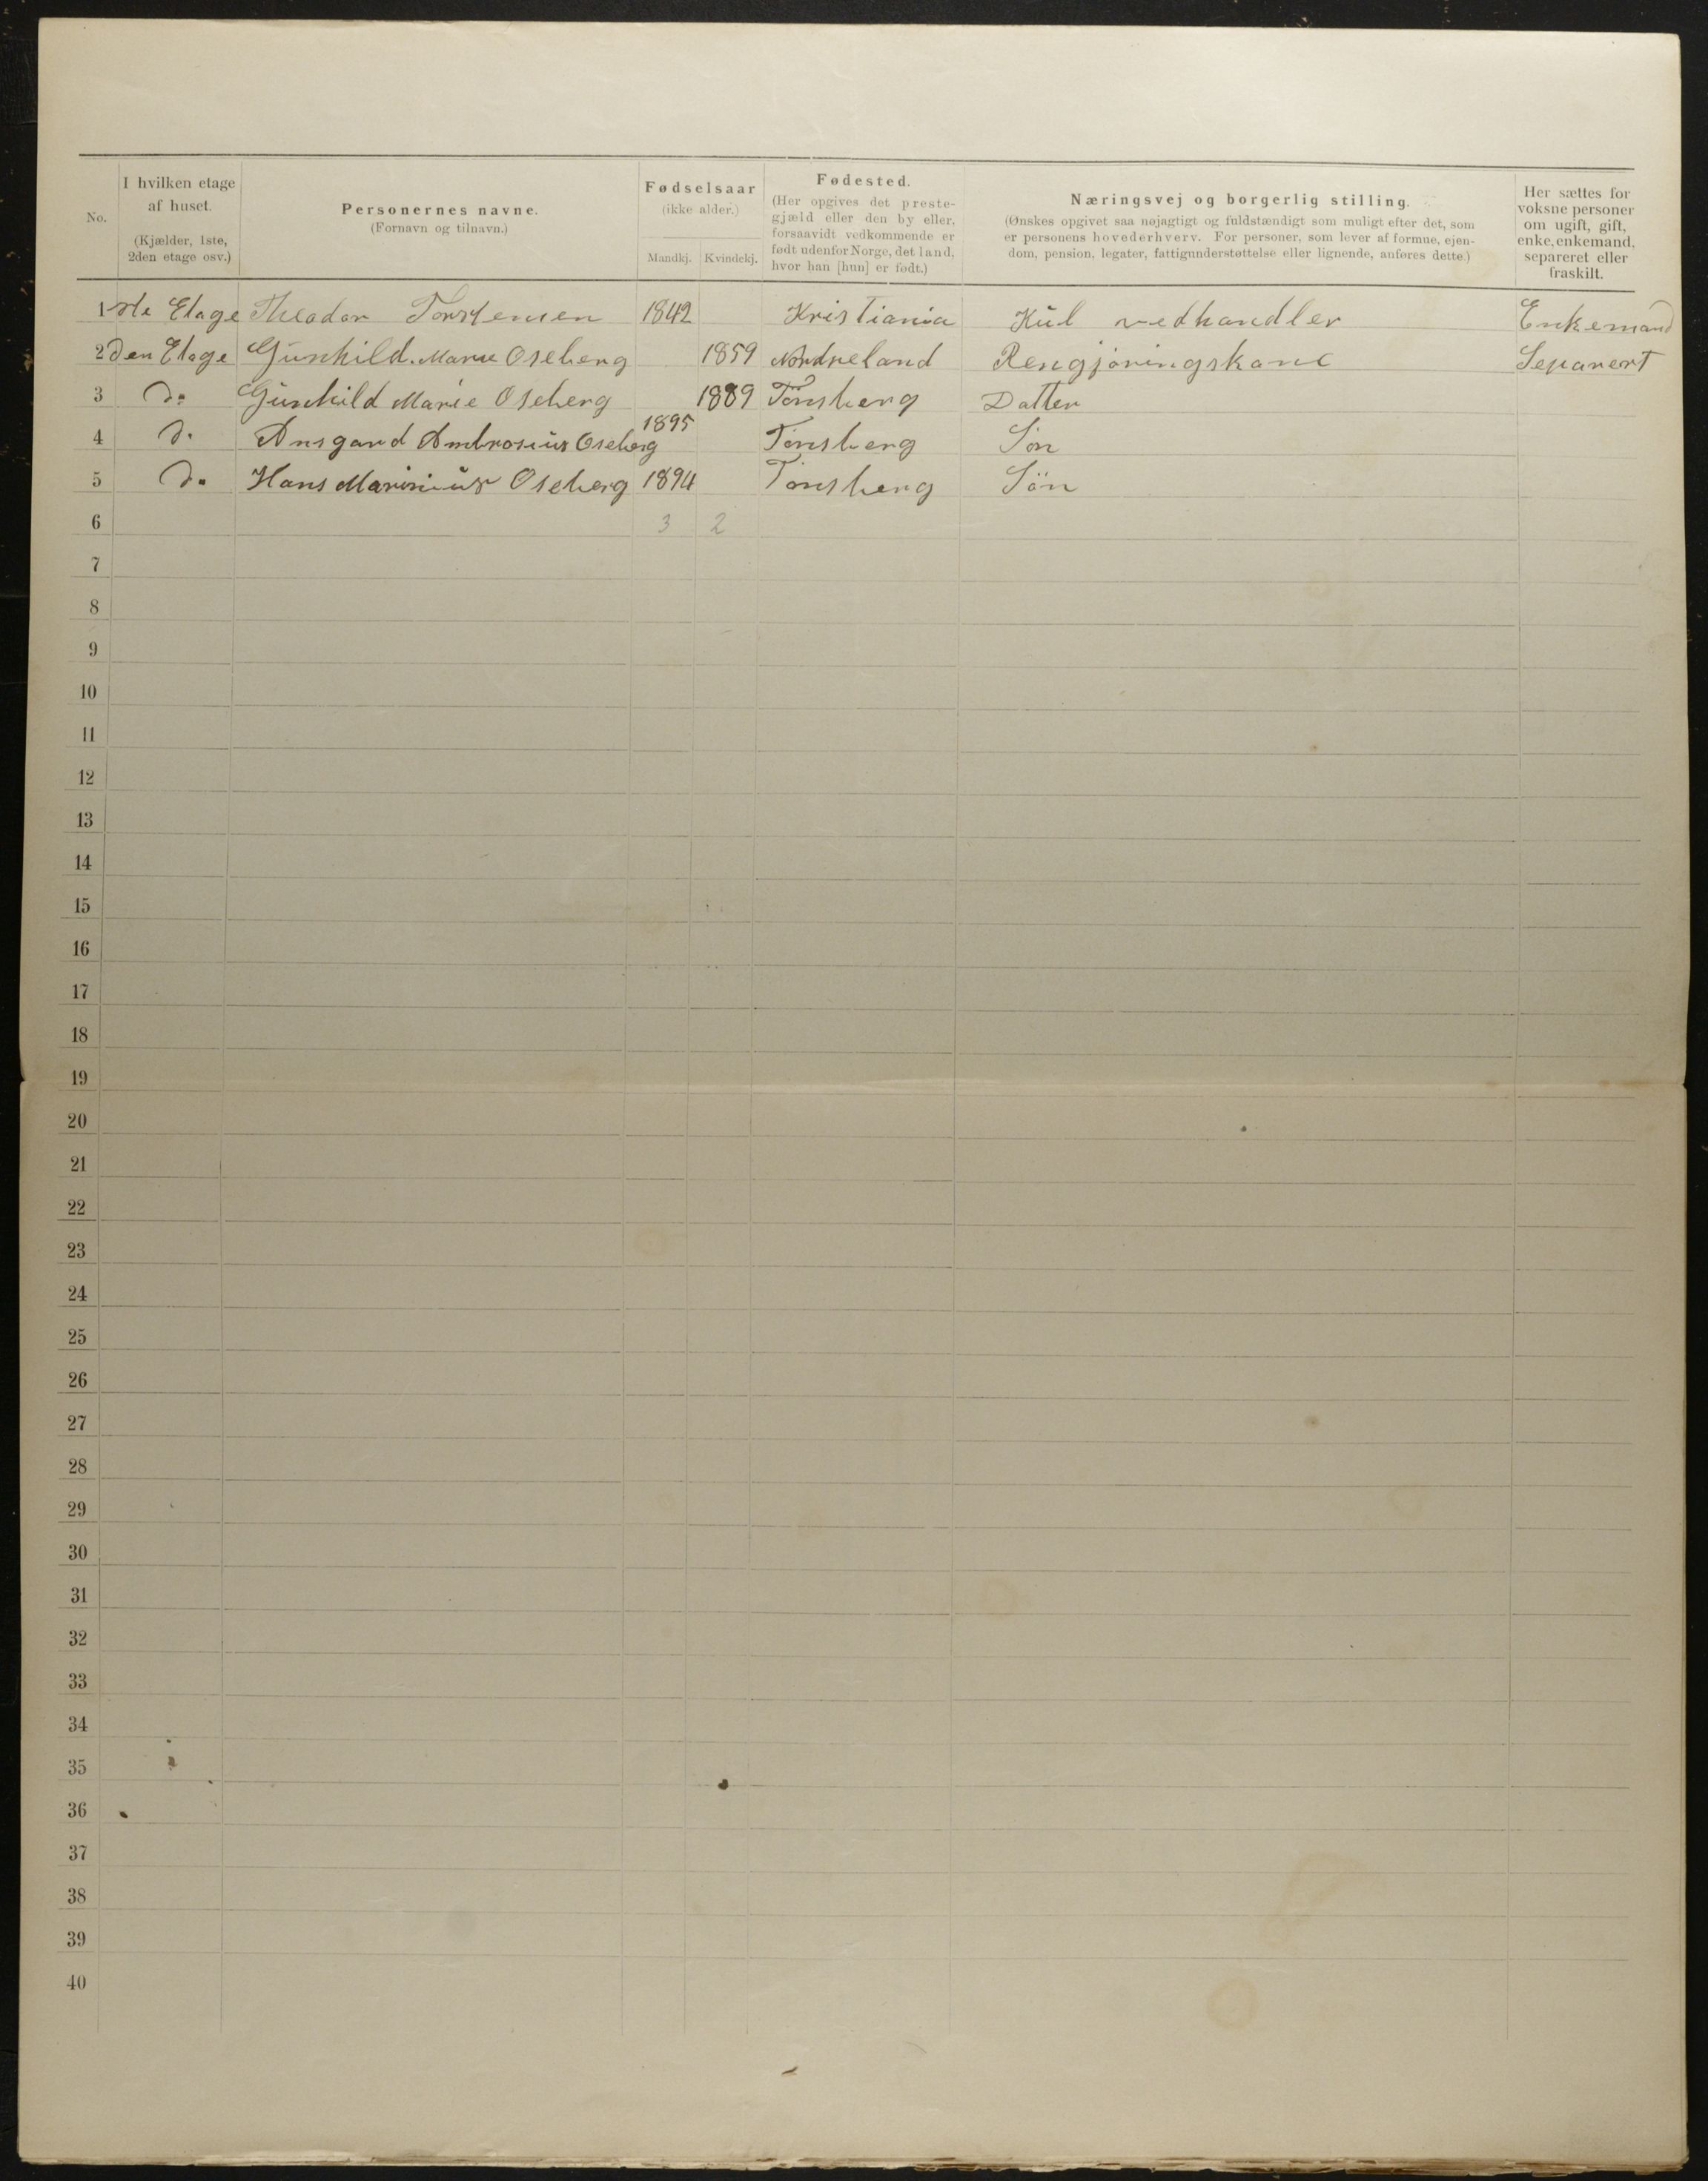 No. | I hvilken etage af huset. (Kjælder, 1ste, 2den etage osv.) | Personernes navne. (Fornavn og tilnavn.) | Fødselsaar (ikke alder.) Mandkj. | Kvindekj. | Fødested. (Her opgives det prestegjæld eller den by eller, forsaavidt vedkommende er født udenfor Norge, det land, hvor han [hun] er født.) | Næringsvej og borgerlig stilling. (Ønskes opgivet saa nøjagtigt og fuldstændigt som muligt efter det, som er personens hovederhverv. For personer, som lever af formue, ejendom, pension, legater, fattigunderstøttelse eller lignende, anføres dette.) | Her sættes for voksne personer om ugift, gift, enke, enkemand, separeret eller fraskilt.
1 ste Etage Theodor Torstensen 1842 Kristiania Kul vedhandler Enkemand
2 den Etage Gunhild Marie Oseberg 1859 Nordreland Rengjøringskone Separert
3 Do Gunhild Marie Oseberg 1889 Tönsberg Datter
4 Do Ansgard Ambrosius Oseberg 1895 Tönsberg Sön
5 Do Hans Marinius Oseberg 1894 Tönsberg Sön
6 3 2
7
8
9
10
11
12
13
14
15
16
17
18
19
20
21
22
23
24
25
26
27
28
29
30
31
32
33
34
35
36
37
38
39
40